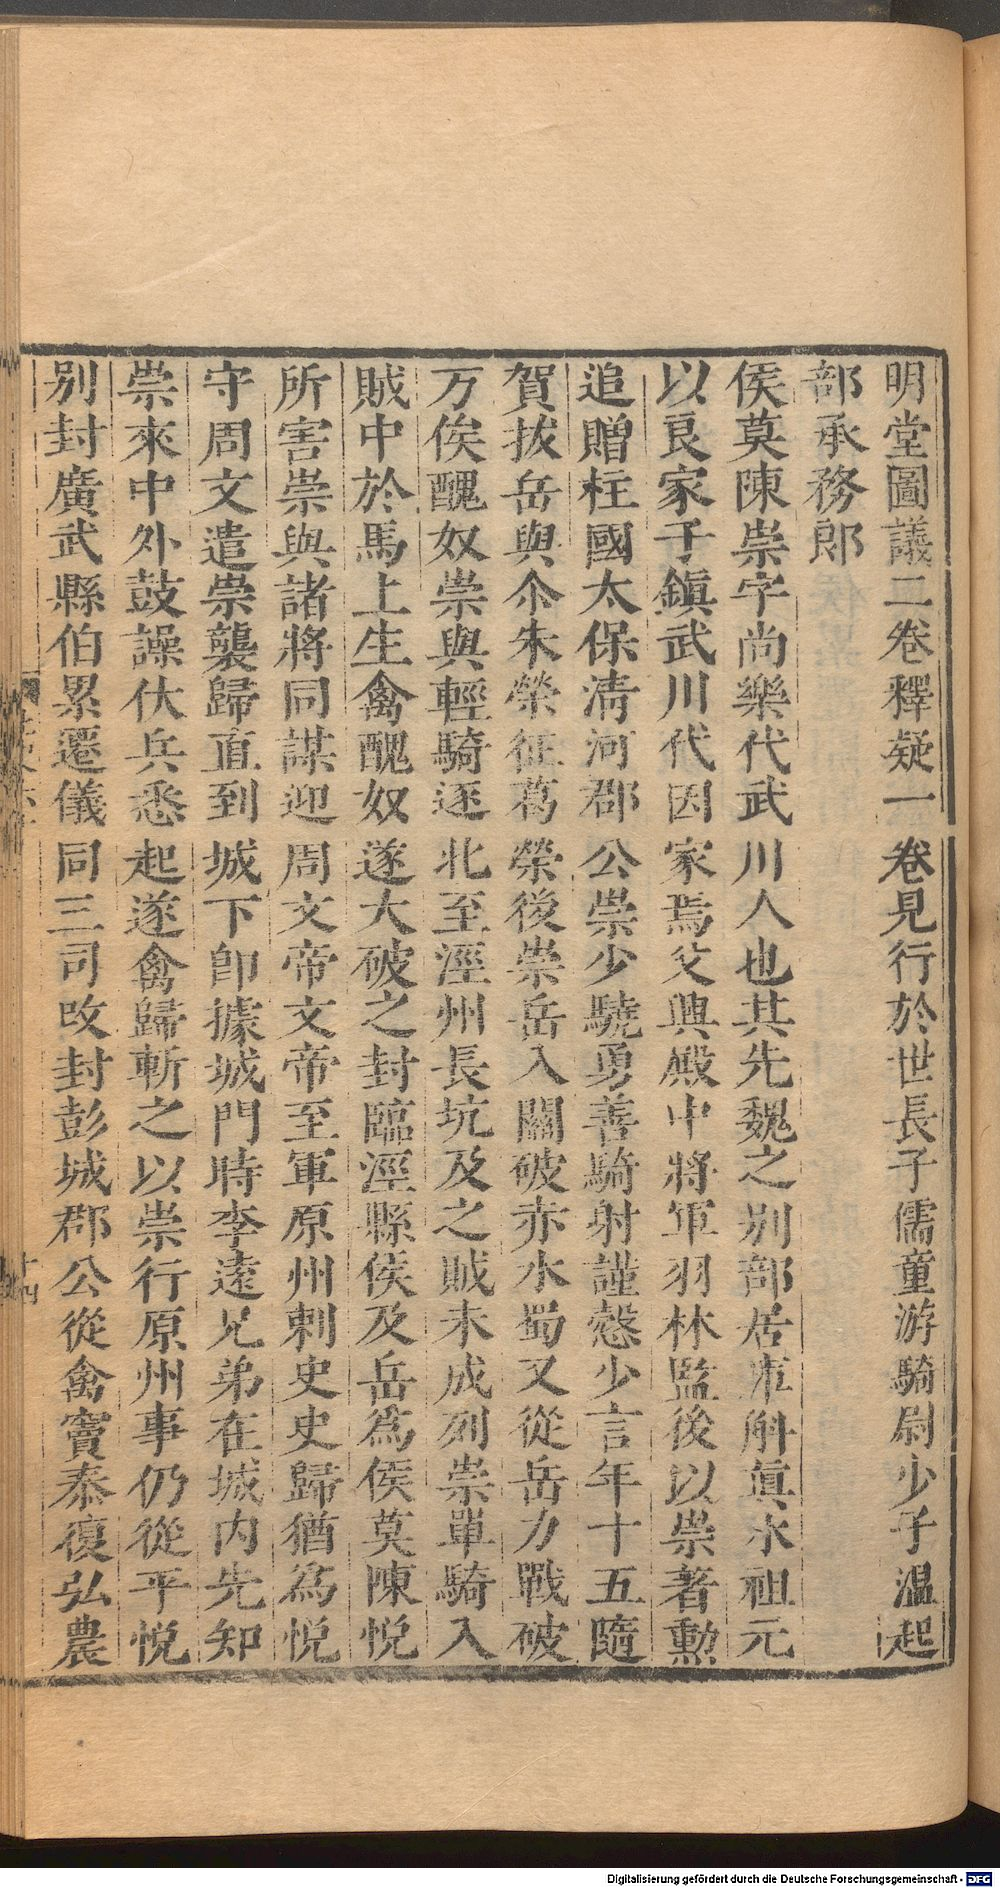 明堂圖議二卷釋疑一卷見行於世長子儒童游騎尉少子溫起
部承務郎
侯莫陳崇字尚樂代武川人也其先魏之别部居庫斛真水祖元
以良家子鎮武川代因家焉父興殿中將軍羽林監後以崇著勲
追贈柱國太保清河郡公崇少驍勇善騎射謹慤少言年十五隨
賀拔岳與尒朱榮征葛榮後崇岳入關破赤水蜀又從岳力戰破
万俟醜奴崇與輕騎逐北至涇州長坑及之賊未成列崇單騎入
賊中於馬上生禽醜奴遂大破之封臨涇縣侯及岳為侯莫陳悅
所害崇與諸將同謀迎周文帝文帝至軍原州刺史史歸猶為悅
守周文遣崇襲歸直到城下卽據城門時李遠兄弟在城内先知
崇來中外鼓譟伏兵悉起遂禽歸斬之以崇行原州事仍從平悅
别封廣武縣伯累遷儀同三司改封彭城郡公從禽竇泰復弘農
十四
Digitalisierung gefördert durch die Deutsche Forschungsgemeinschaft - DFG